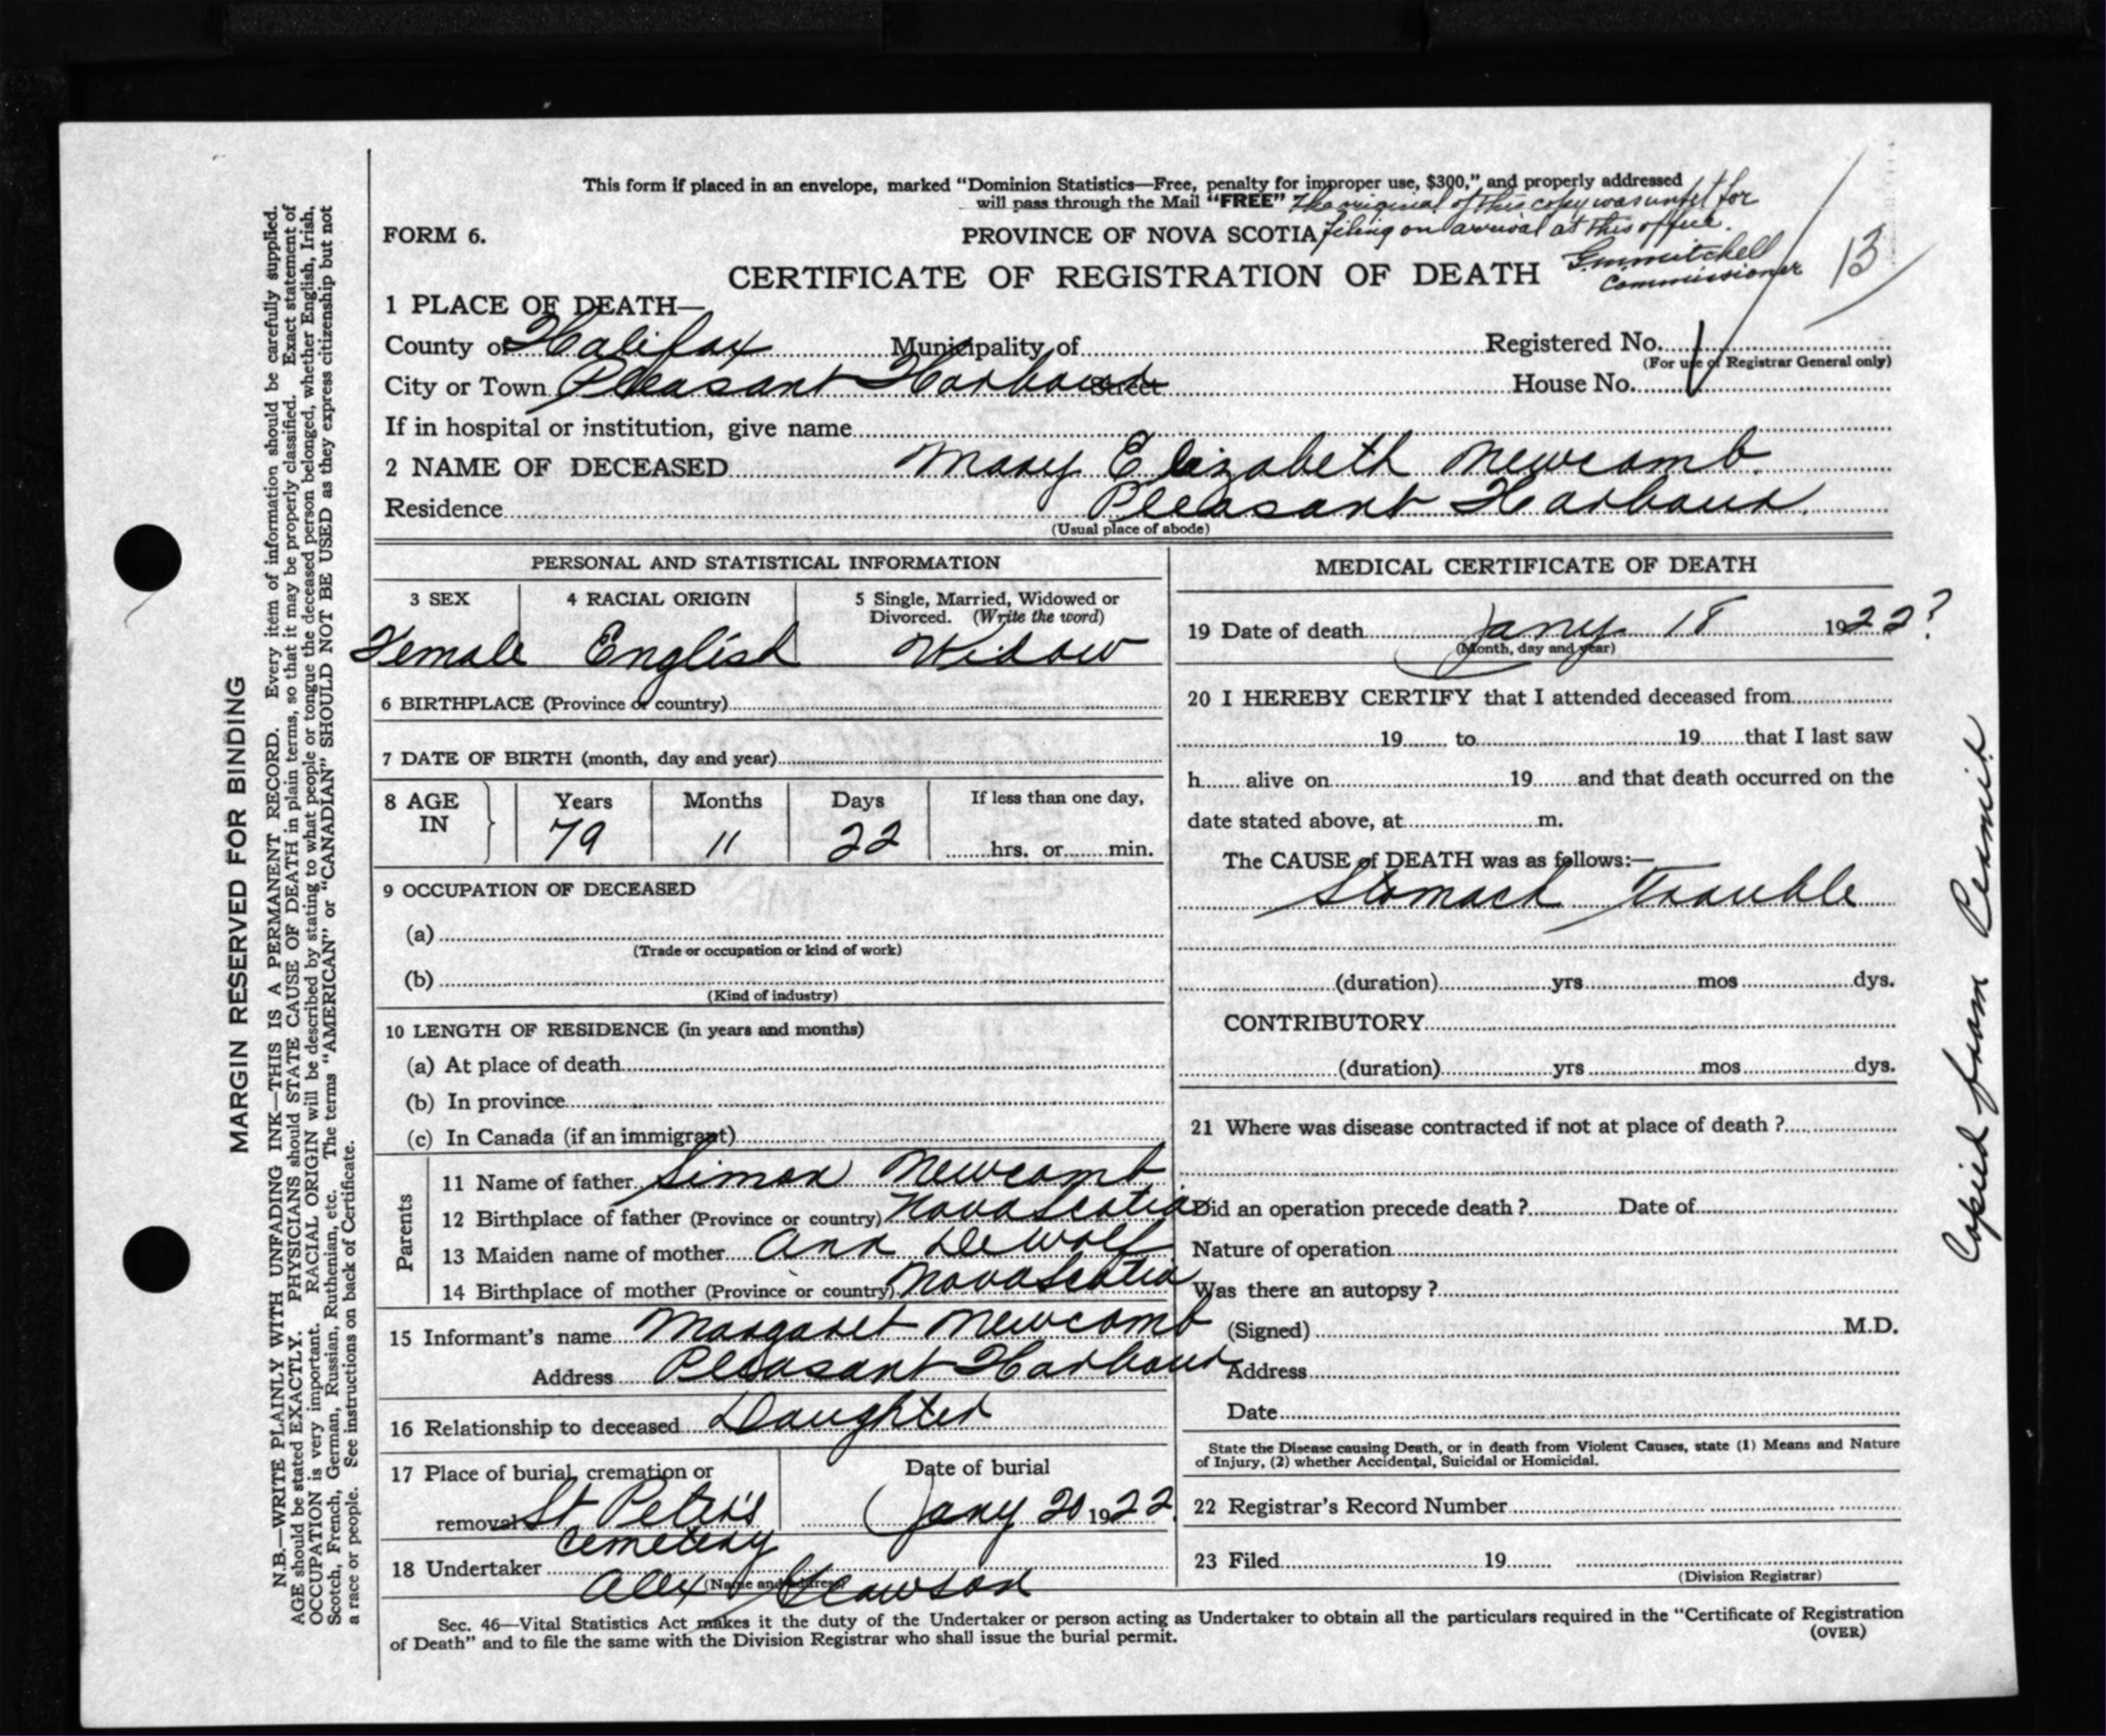 This form if placed in an envelope, marked "Dominion Statistics—Free, penalty for improper use, $300," and properly addressed
will pass through the Mail "FREE" The original of this copy was unfit for
FORM 6. PROVINCE OF NOVA SCOTIA filing on arrival at this office.
CERTIFICATE OF REGISTRATION OF DEATH
Mitchell
Commissioner
13
1 PLACE OF DEATH—
County of Halifax Municipality of Registered No.
(For use of Registrar General only)
City or Town Pleasant Harbour Street House No.
If in hospital or institution, give name
2 NAME OF DECEASED Mary Elizabeth Newcomb
Residence Pleasant Harbour.
(Usual place of abode)
PERSONAL AND STATISTICAL INFORMATION
3 SEX 4 RACIAL ORIGIN 5 Single, Married, Widowed or
Divorced. (Write the word)
Female English Widow
6 BIRTHPLACE (Province or country)
7 DATE OF BIRTH (month, day and year)
8 AGE IN Years Months Days If less than one day,
79 11 22 hrs. or min.
9 OCCUPATION OF DECEASED
(a)
(Trade or occupation or kind of work)
(b)
(Kind of industry)
10 LENGTH OF RESIDENCE (in years and months)
(a) At place of death
(b) In province
(c) In Canada (if an immigrant)
Parents
11 Name of father Simon Newcomb
12 Birthplace of father (Province or country) Nova Scotia
13 Maiden name of mother Ann DeWolf
14 Birthplace of mother (Province or country) Nova Scotia
15 Informant's name Margaret Newcomb
Address Pleasant Harbour
16 Relationship to deceased Daughter
17 Place of burial, cremation or Date of burial
removal St Peter's Jany 20 1922
Cemetery
18 Undertaker
(Name and address)
Alex
MEDICAL CERTIFICATE OF DEATH
19 Date of death Jany 18 1922?
(Month, day and year)
20 I HEREBY CERTIFY that I attended deceased from
19 to 19 that I last saw
h alive on 19 and that death occurred on the
date stated above, at m.
The CAUSE of DEATH was as follows:—
Stomach Trouble
(duration) yrs mos dys.
CONTRIBUTORY
(duration) yrs mos dys.
21 Where was disease contracted if not at place of death ?
Did an operation precede death ? Date of
Nature of operation
Was there an autopsy ?
(Signed) M.D.
Address
Date
State the Disease causing Death, or in death from Violent Causes, state (1) Means and Nature
of Injury, (2) whether Accidental, Suicidal or Homicidal.
22 Registrar's Record Number
23 Filed 19
(Division Registrar)
Sec. 46—Vital Statistics Act makes it the duty of the Undertaker or person acting as Undertaker to obtain all the particulars required in the "Certificate of Registration
of Death" and to file the same with the Division Registrar who shall issue the burial permit.
(OVER)
MARGIN RESERVED FOR BINDING
N.B.—WRITE PLAINLY WITH UNFADING INK—THIS IS A PERMANENT RECORD. Every item of information should be carefully supplied.
AGE should be stated EXACTLY. PHYSICIANS should STATE CAUSE OF DEATH in plain terms, so that it may be properly classified. Exact statement of
OCCUPATION is very important. RACIAL ORIGIN will be described by stating to what people or tongue the deceased person belonged, whether English, Irish,
Scotch, French, German, Russian, Ruthenian, etc. The terms "AMERICAN" or "CANADIAN" SHOULD NOT BE USED as they express citizenship but not
a race or people. See instructions on back of Certificate.
Copied from Permit